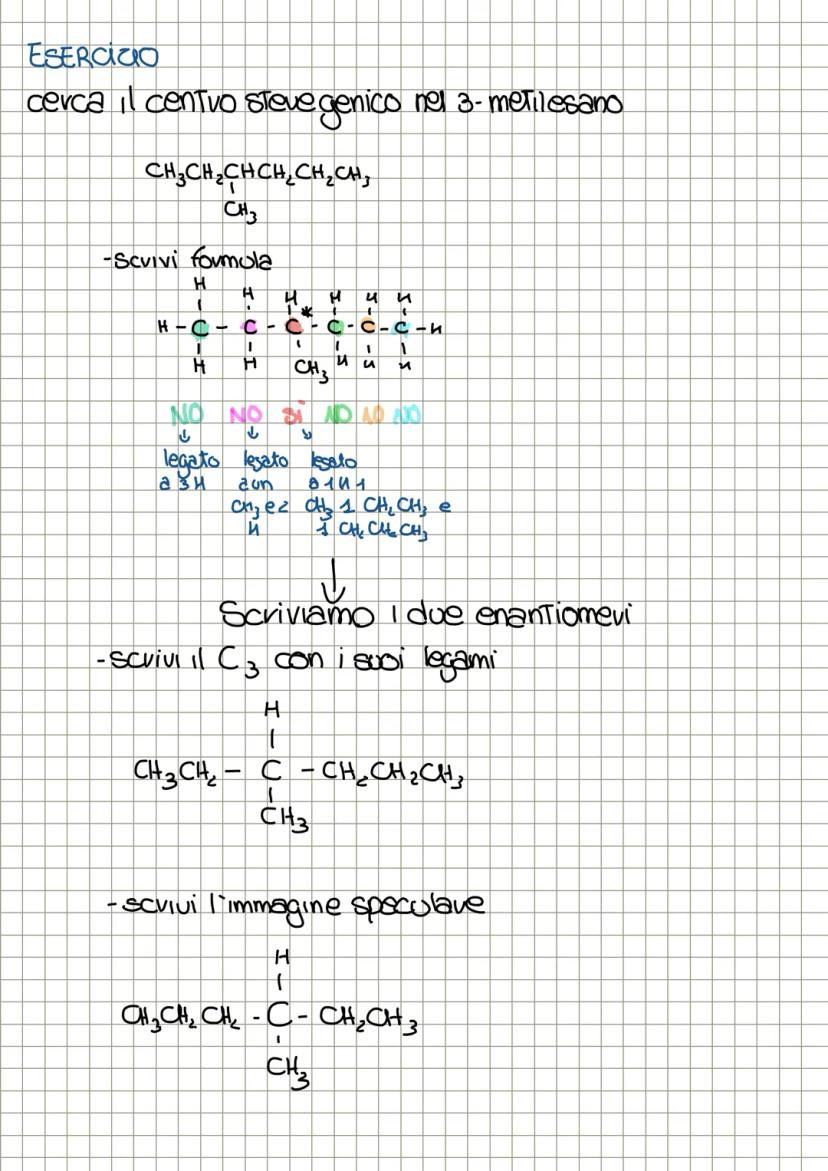 ESERCIZIO
cerca il centro stereogenico nel 3-metilesano
CH₃CH₂CHCH₂CH₂CH₃
CH₃
-scrivi formula
H H H H H H
H - C - C - C* - C - C - C - H
H H CH₃ H H H
NO NO Sì NO NO NO
↓ ↓ ↘
legato legato legato
a 3H a un a 1H 1
CH₃ e 2 CH₃ 1 CH₂CH₃ e
H 1 CH₂CH₂CH₃
↓
Scriviamo i due enantiomeri
-scrivi il C₃ con i suoi legami
H
CH₃CH₂ - C - CH₂CH₂CH₃
CH₃
-scrivi l'immagine speculare
H
CH₃CH₂CH₂ - C - CH₂CH₃
CH₃